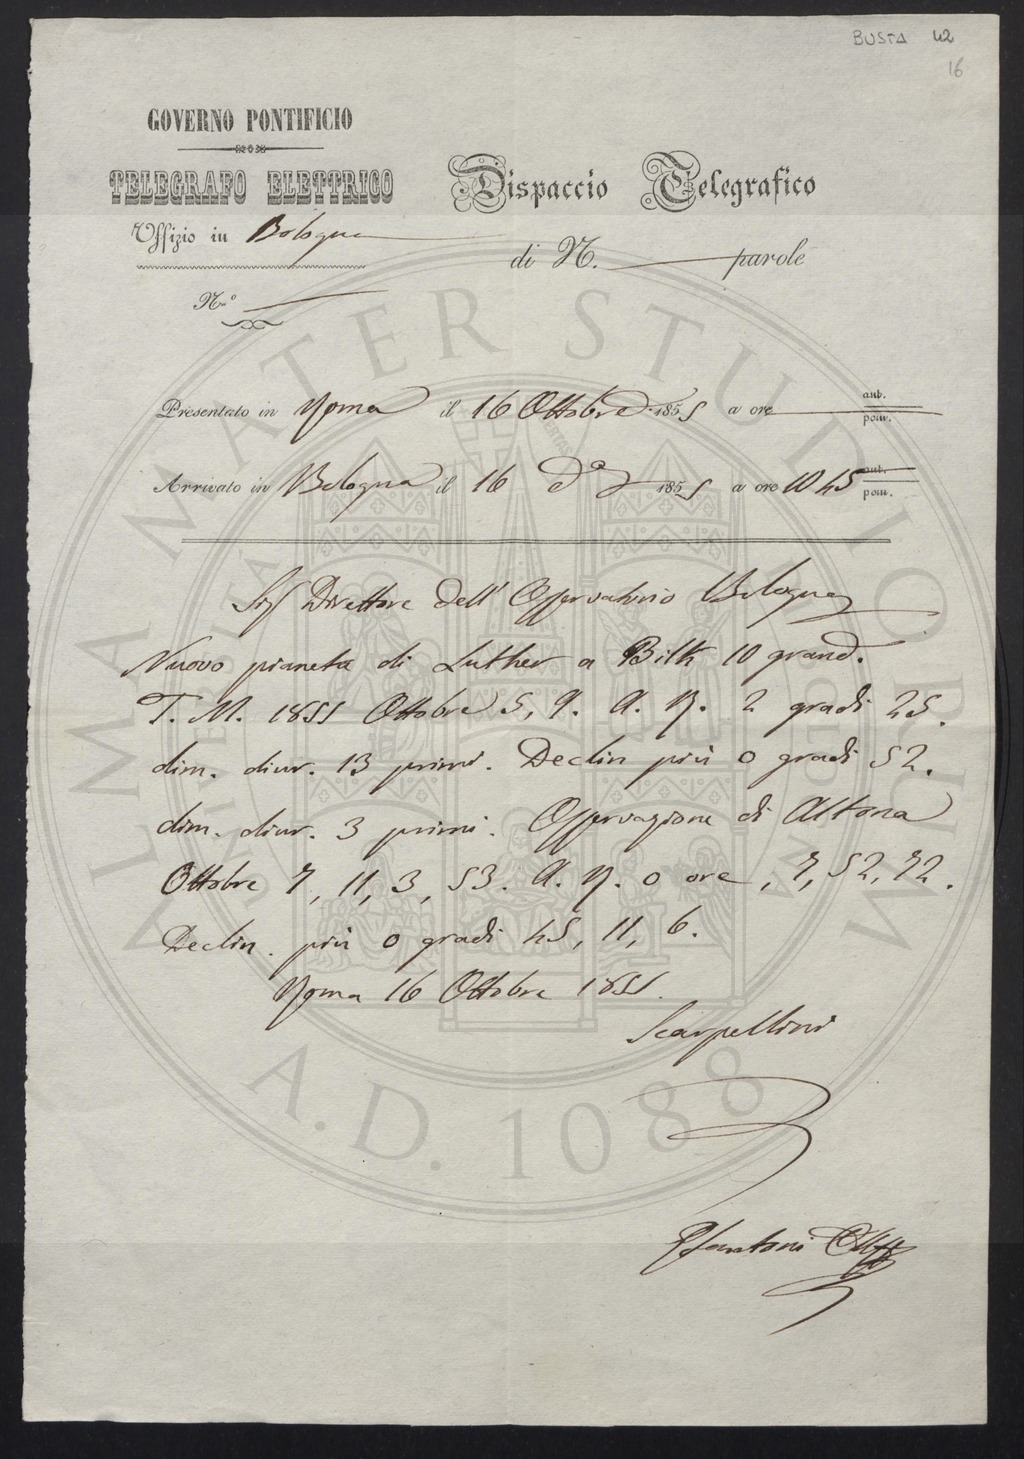 BUSTA 42
16
GOVERNO PONTIFICIO
TELEGRAFO ELETTRICO
Dispaccio Telegrafico
Uffizio in Bologna
di N. parole
N.º
Presentato in Roma il 16 Ottobre 1855 a ore ant. pom.
Arrivato in Bologna il 16 do 1855 a ore 10 45 ant. pom.
Sigr Direttore dell' Osservatorio Bologna
Nuovo pianeta di Luther a Bilk 10 grand.
T. M. 1855 Ottobre 5, 9. A. R. 2 gradi 25.
dim. diur. 13 primi. Declin più 0 gradi 52.
dim. diur. 3 primi. Osservazione di Altona
Ottobre 7, 11, 3, 53. A. R. 0 ore, 7, 52, 72.
Declin. più 0 gradi 45, 11, 6.
Roma 16 Ottobre 1855.
Scarpellini
Pfantoni
ALMA MATER STUDIORUM
A.D. 1088